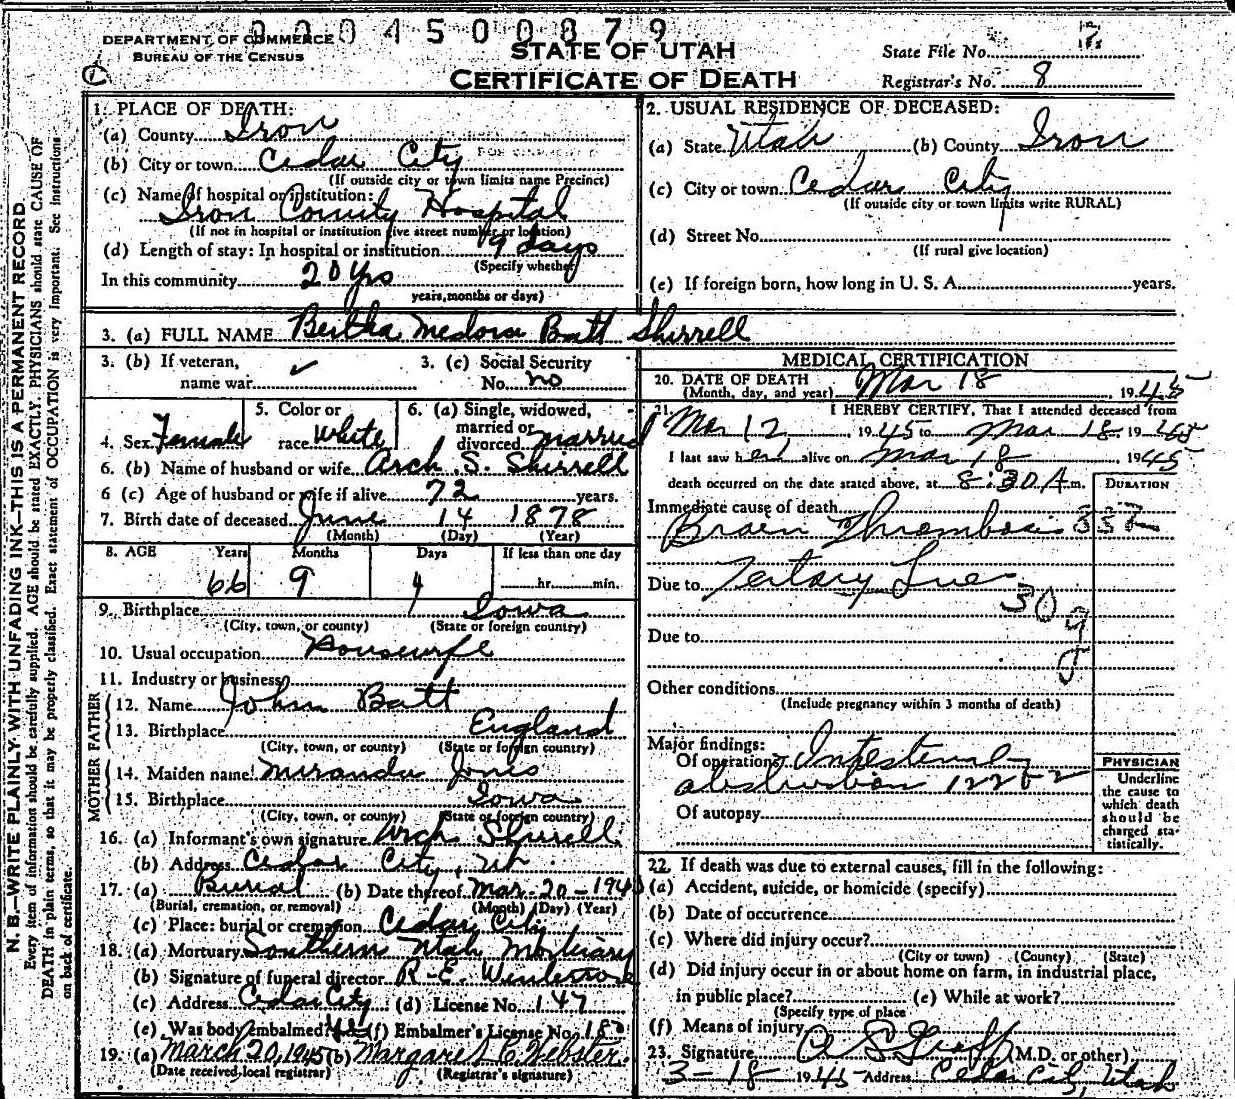 0004500879
DEPARTMENT OF COMMERCE
BUREAU OF THE CENSUS
STATE OF UTAH
CERTIFICATE OF DEATH
State File No.
Registrar's No. 8
1. PLACE OF DEATH:
(a) County Iron
(b) City or town Cedar City
(If outside city or town limits name Precinct)
(c) Name of hospital or institution:
Iron County Hospital
(If not in hospital or institution give street number or location)
(d) Length of stay: In hospital or institution 9 days
(Specify whether
In this community 20 yrs
years, months or days)
2. USUAL RESIDENCE OF DECEASED:
(a) State Utah (b) County Iron
(c) City or town Cedar City
(If outside city or town limits write RURAL)
(d) Street No.
(If rural give location)
(e) If foreign born, how long in U. S. A. years.
3. (a) FULL NAME Bertha Medora Batt Shirrell
3. (b) If veteran,
name war
3. (c) Social Security
No. no
4. Sex Female
5. Color or
race White
6. (a) Single, widowed,
married or
divorced married
6. (b) Name of husband or wife Arch S. Shirrell
6 (c) Age of husband or wife if alive 72 years.
7. Birth date of deceased June 14 1878
(Month) (Day) (Year)
8. AGE Years Months Days If less than one day
66 9 4 hr. min.
9. Birthplace Iowa
(City, town, or county) (State or foreign country)
10. Usual occupation Housewife
11. Industry or business
FATHER
12. Name John Batt
13. Birthplace England
(City, town, or county) (State or foreign country)
MOTHER
14. Maiden name Miranda Jones
15. Birthplace Iowa
(City, town, or county) (State or foreign country)
16. (a) Informant's own signature Arch Shirrell
(b) Address Cedar City, Ut
17. (a) Burial (b) Date thereof Mar. 20-1945
(Burial, cremation, or removal) (Month) (Day) (Year)
(c) Place: burial or cremation Cedar City
18. (a) Mortuary Southern Utah Mortuary
(b) Signature of funeral director R. E.
(c) Address Cedar City (d) License No. 147
(e) Was body embalmed? yes (f) Embalmer's License No. 180
19. (a) March 20, 1945 (b) Margaret C. Webster
(Date received local registrar) (Registrar's signature)
MEDICAL CERTIFICATION
20. DATE OF DEATH
(Month, day, and year) Mar 18, 1945
21. I HEREBY CERTIFY, That I attended deceased from
Mar 12, 1945 to Mar 18 1945
I last saw her alive on Mar 18 1945
death occurred on the date stated above, at 8:30 A m.
DURATION
Immediate cause of death
Brain Thrombosis 832
Due to Tertary Lues
30
g
Due to
Other conditions
(Include pregnancy within 3 months of death)
Major findings:
Of operations Intestinal
obstruction 122
Of autopsy
PHYSICIAN
Underline
the cause to
which death
should be
charged sta-
tistically.
22. If death was due to external causes, fill in the following:
(a) Accident, suicide, or homicide (specify)
(b) Date of occurrence
(c) Where did injury occur?
(City or town) (County) (State)
(d) Did injury occur in or about home on farm, in industrial place,
in public place? (e) While at work?
(Specify type of place
(f) Means of injury
23. Signature (M.D. or other)
3-18 1945 Address Cedar City, Utah
N. B.—WRITE PLAINLY WITH UNFADING INK—THIS IS A PERMANENT RECORD
Every item of information should be carefully supplied. AGE should be stated EXACTLY. PHYSICIANS should state CAUSE OF
DEATH in plain terms, so that it may be properly classified. Exact statement of OCCUPATION is very important. See instructions
on back of certificate.